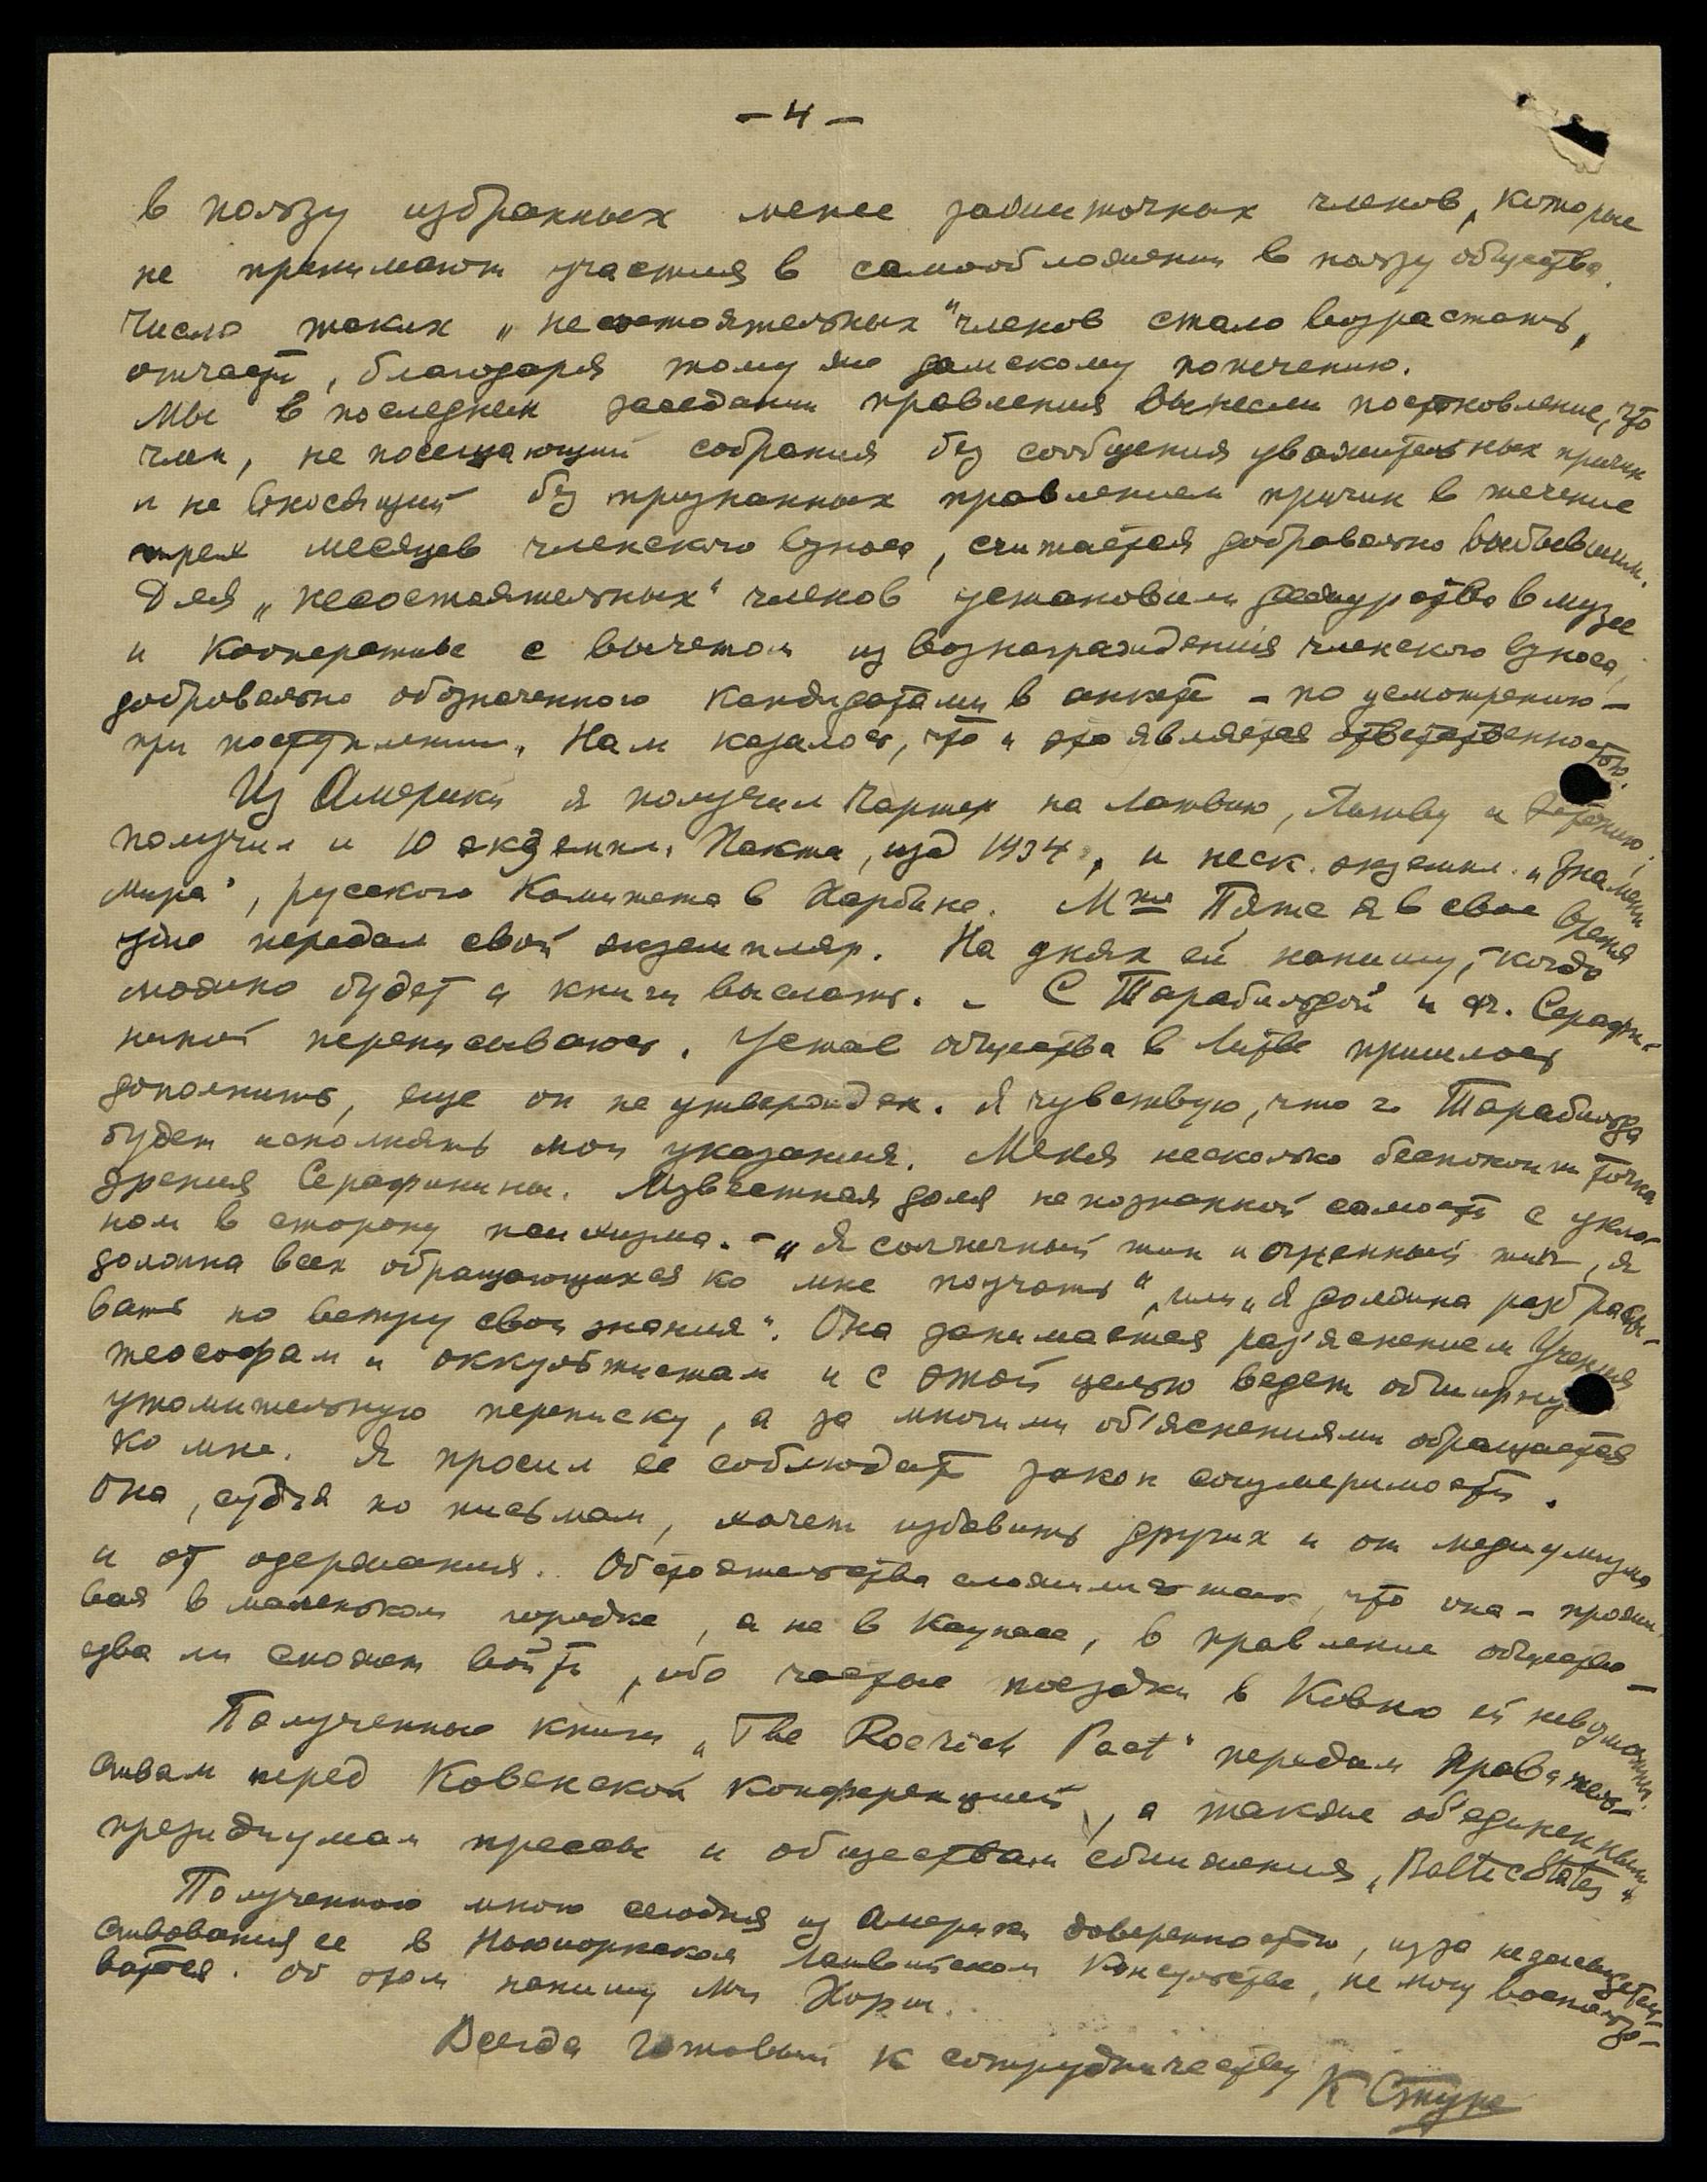 – 4 –
в пользу избранных менее зажиточных членов, которые
не принимают участия в самообложении в пользу общества.
Число таких „несостоятельных" членов стало возрастать,
отчасти, благодаря тому же дамскому попечению.
Мы в последнем заседании правления вынесли постановление, что
член, не посещающий собрания без сообщения уважительных причин
и не вносящий без признанных правлением причин в течение
трех месяцев членского взноса, считается добровольно выбывшим.
Для „несостоятельных" членов установили дежурство в музее
и кооперативе с вычетом из вознаграждения членского взноса,
добровольно обозначенного кандидатами в анкете – по усмотрению –
при поступлении. Нам казалось, что и это является ответственностью.
Из Америки я получил Чартер на Латвию, Литву и Эстонию;
получил и 10 экземпл. Пакта, изд 1934, и неск. экземпл. „Знамени
Мира", русского Комитета в Харбине. Мme Пяте я в свое время
уже передал свой экземпляр. На днях ей напишу, когда
можно будет и книги выслать. – С Тарабильдой и Серафи-
ниной переписываюсь. Устав общества в Литве пришлось
дополнить, еще он не утвержден. Я чувствую, что г. Тарабильда
будет исполнять мои указания. Меня несколько беспокоит точка
зрения Серафинины. Известная доля непознанной самости с укло-
ном в сторону психизма. – „Я солнечный тип и огненный тип, я
должна всех обращающихся ко мне поучать", или „Я должна разбрасы-
вать по ветру свои знания". Она занимается раз'яснением Учения
теософам и оккультистам и с этой целью ведет обширную
утомительную переписку, а за многими об'яснениями обращается
ко мне. Я просил ее соблюдать закон соизмеримости.
Она, судя по письмам, хочет избавить других и от медиумизма
и от одержания. Обстоятельства сложились так, что она – прожи-
вая в маленьком городке, а не в Каунасе, в правление общества –
едва ли сможет войти, ибо частые поездки в Ковно ей невозможны.
Полученные книги „The Roerich Pact" передам Правитель-
ствам перед Ковенской конференцией, а также об'единенным
президиумам прессы и обществам сближения „Baltic States".
Полученною мною сегодня из Америки доверенностью, из за незасвидетель-
ствования ее в Ньюиоркском Латвийском Консульстве, не могу воспользо-
ваться. Об этом напишу Мг Хорш.
Всегда готовый к сотрудничеству
К Стуре